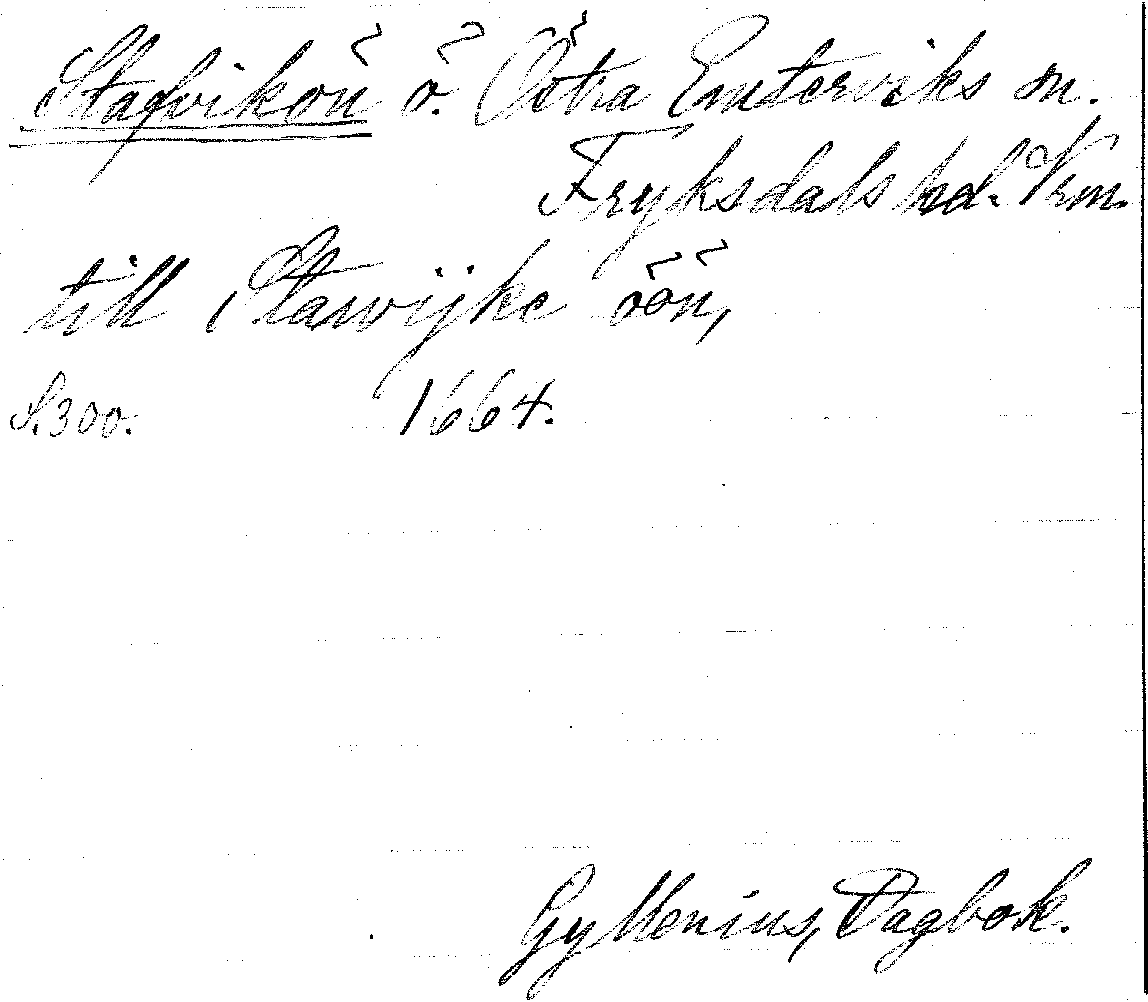 Stafvikön ö. Östra Emterviks sn.
Fryksdals hd. Vrm.
till Stawijke öön,
S. 300. 1664.
Gyllenius, Dagbok.